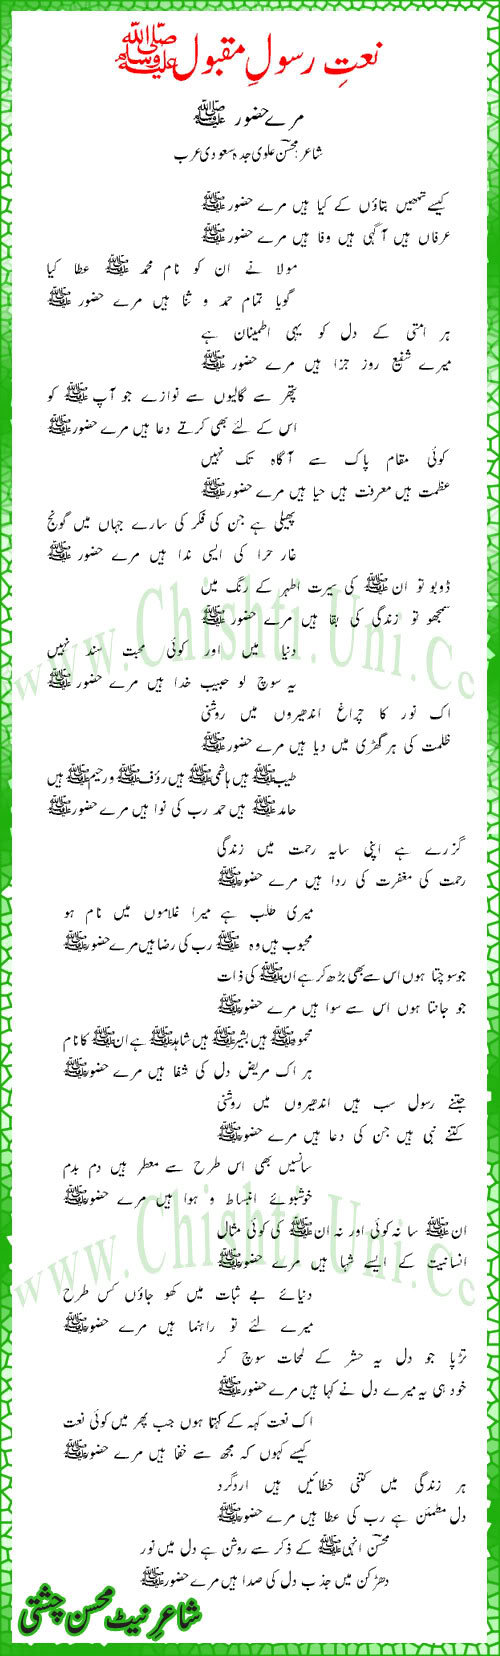 نعتِ رسولِ مقبول ﷺ
مرے حضور ﷺ
شاعر: محسنؔ علوی جدہ سعودی عرب
کیسے تمھیں بتاؤں کے کیا ہیں مرے حضور ﷺ
عرفاں ہیں آگہی ہیں وفا ہیں مرے حضور ﷺ
مولا نے ان کو نام محمد ﷺ عطا کیا
گویا تمام حمد و ثنا ہیں مرے حضور ﷺ
ہر امتی کے دل کو یہی اطمینان ہے
میرے شفیع روز جزا ہیں مرے حضور ﷺ
پتھر سے گالیوں سے نوازے جو آپ ﷺ کو
اس کے لئے بھی کرتے دعا ہیں مرے حضور ﷺ
کوئی مقام پاک سے آگاہ تک نہیں
عظمت ہیں معرفت ہیں حیا ہیں مرے حضور ﷺ
پھیلی ہے جن کی فکر کی سارے جہاں میں گونج
غار حرا کی ایسی ندا ہیں مرے حضور ﷺ
ڈوبو تو ان ﷺ کی سیرت اطہر کے رنگ میں
سمجھو تو زندگی کی بقا ہیں مرے حضور ﷺ
دنیا میں اور کوئی محبت سند نہیں
یہ سوچ لو حبیب خدا ہیں مرے حضور ﷺ
اک نور کا چراغ اندھیروں میں روشنی
ظلمت کی ہر گھڑی میں دیا ہیں مرے حضور ﷺ
طیب ﷺ ہیں ہاشمی ﷺ ہیں رؤف ﷺ و رحیم ﷺ ہیں
حامد ﷺ ہیں حمد رب کی نوا ہیں مرے حضور ﷺ
گزرے ہے اپنی سایہ رحمت میں زندگی
رحمت کی مغفرت کی ردا ہیں مرے حضور ﷺ
میری طلب ہے میرا غلاموں میں نام ہو
محبوب ہیں وہ ﷺ رب کی رضا ہیں مرے حضور ﷺ
جو سوچتا ہوں اس سے بھی بڑھ کر ہے ان ﷺ کی ذات
جو جانتا ہوں اس سے سوا ہیں مرے حضور ﷺ
محمود ﷺ ہیں بشیر ﷺ ہیں شاہد ﷺ ہے ان ﷺ کا نام
ہر اک مریض دل کی شفا ہیں مرے حضور ﷺ
جتنے رسول سب ہیں اندھیروں میں روشنی
کتنے نبی ہیں جن کی دعا ہیں مرے حضور ﷺ
سانسیں بھی اس طرح سے معطر ہیں دم بدم
خوشبوئے انبساط و ہوا ہیں مرے حضور ﷺ
ان ﷺ سا نہ کوئی اور نہ ان ﷺ کی کوئی مثال
انسانیت کے ایسے شہا ہیں مرے حضور ﷺ
دنیائے بے ثبات میں کھو جاؤں کس طرح
میرے لئے تو راہنما ہیں مرے حضور ﷺ
تڑپا جو دل یہ حشر کے لمحات سوچ کر
خود ہی یہ میرے دل نے کہا ہیں مرے حضور ﷺ
اک نعت کہہ کے کہتا ہوں جب پھر میں کوئی نعت
کیسے کہوں کہ مجھ سے خفا ہیں مرے حضور ﷺ
ہر زندگی میں کتنی خطائیں ہیں اردگرد
دل مطمئن ہے رب کی عطا ہیں مرے حضور ﷺ
محسنؔ انہی ﷺ کے ذکر سے روشن ہے دل میں نور
دھڑکن میں جذب دل کی صدا ہیں مرے حضور ﷺ
شاعرِ نیٹ محسن چشتی
www.Chishti.Uni.Cc
www.Chishti.Uni.Cc